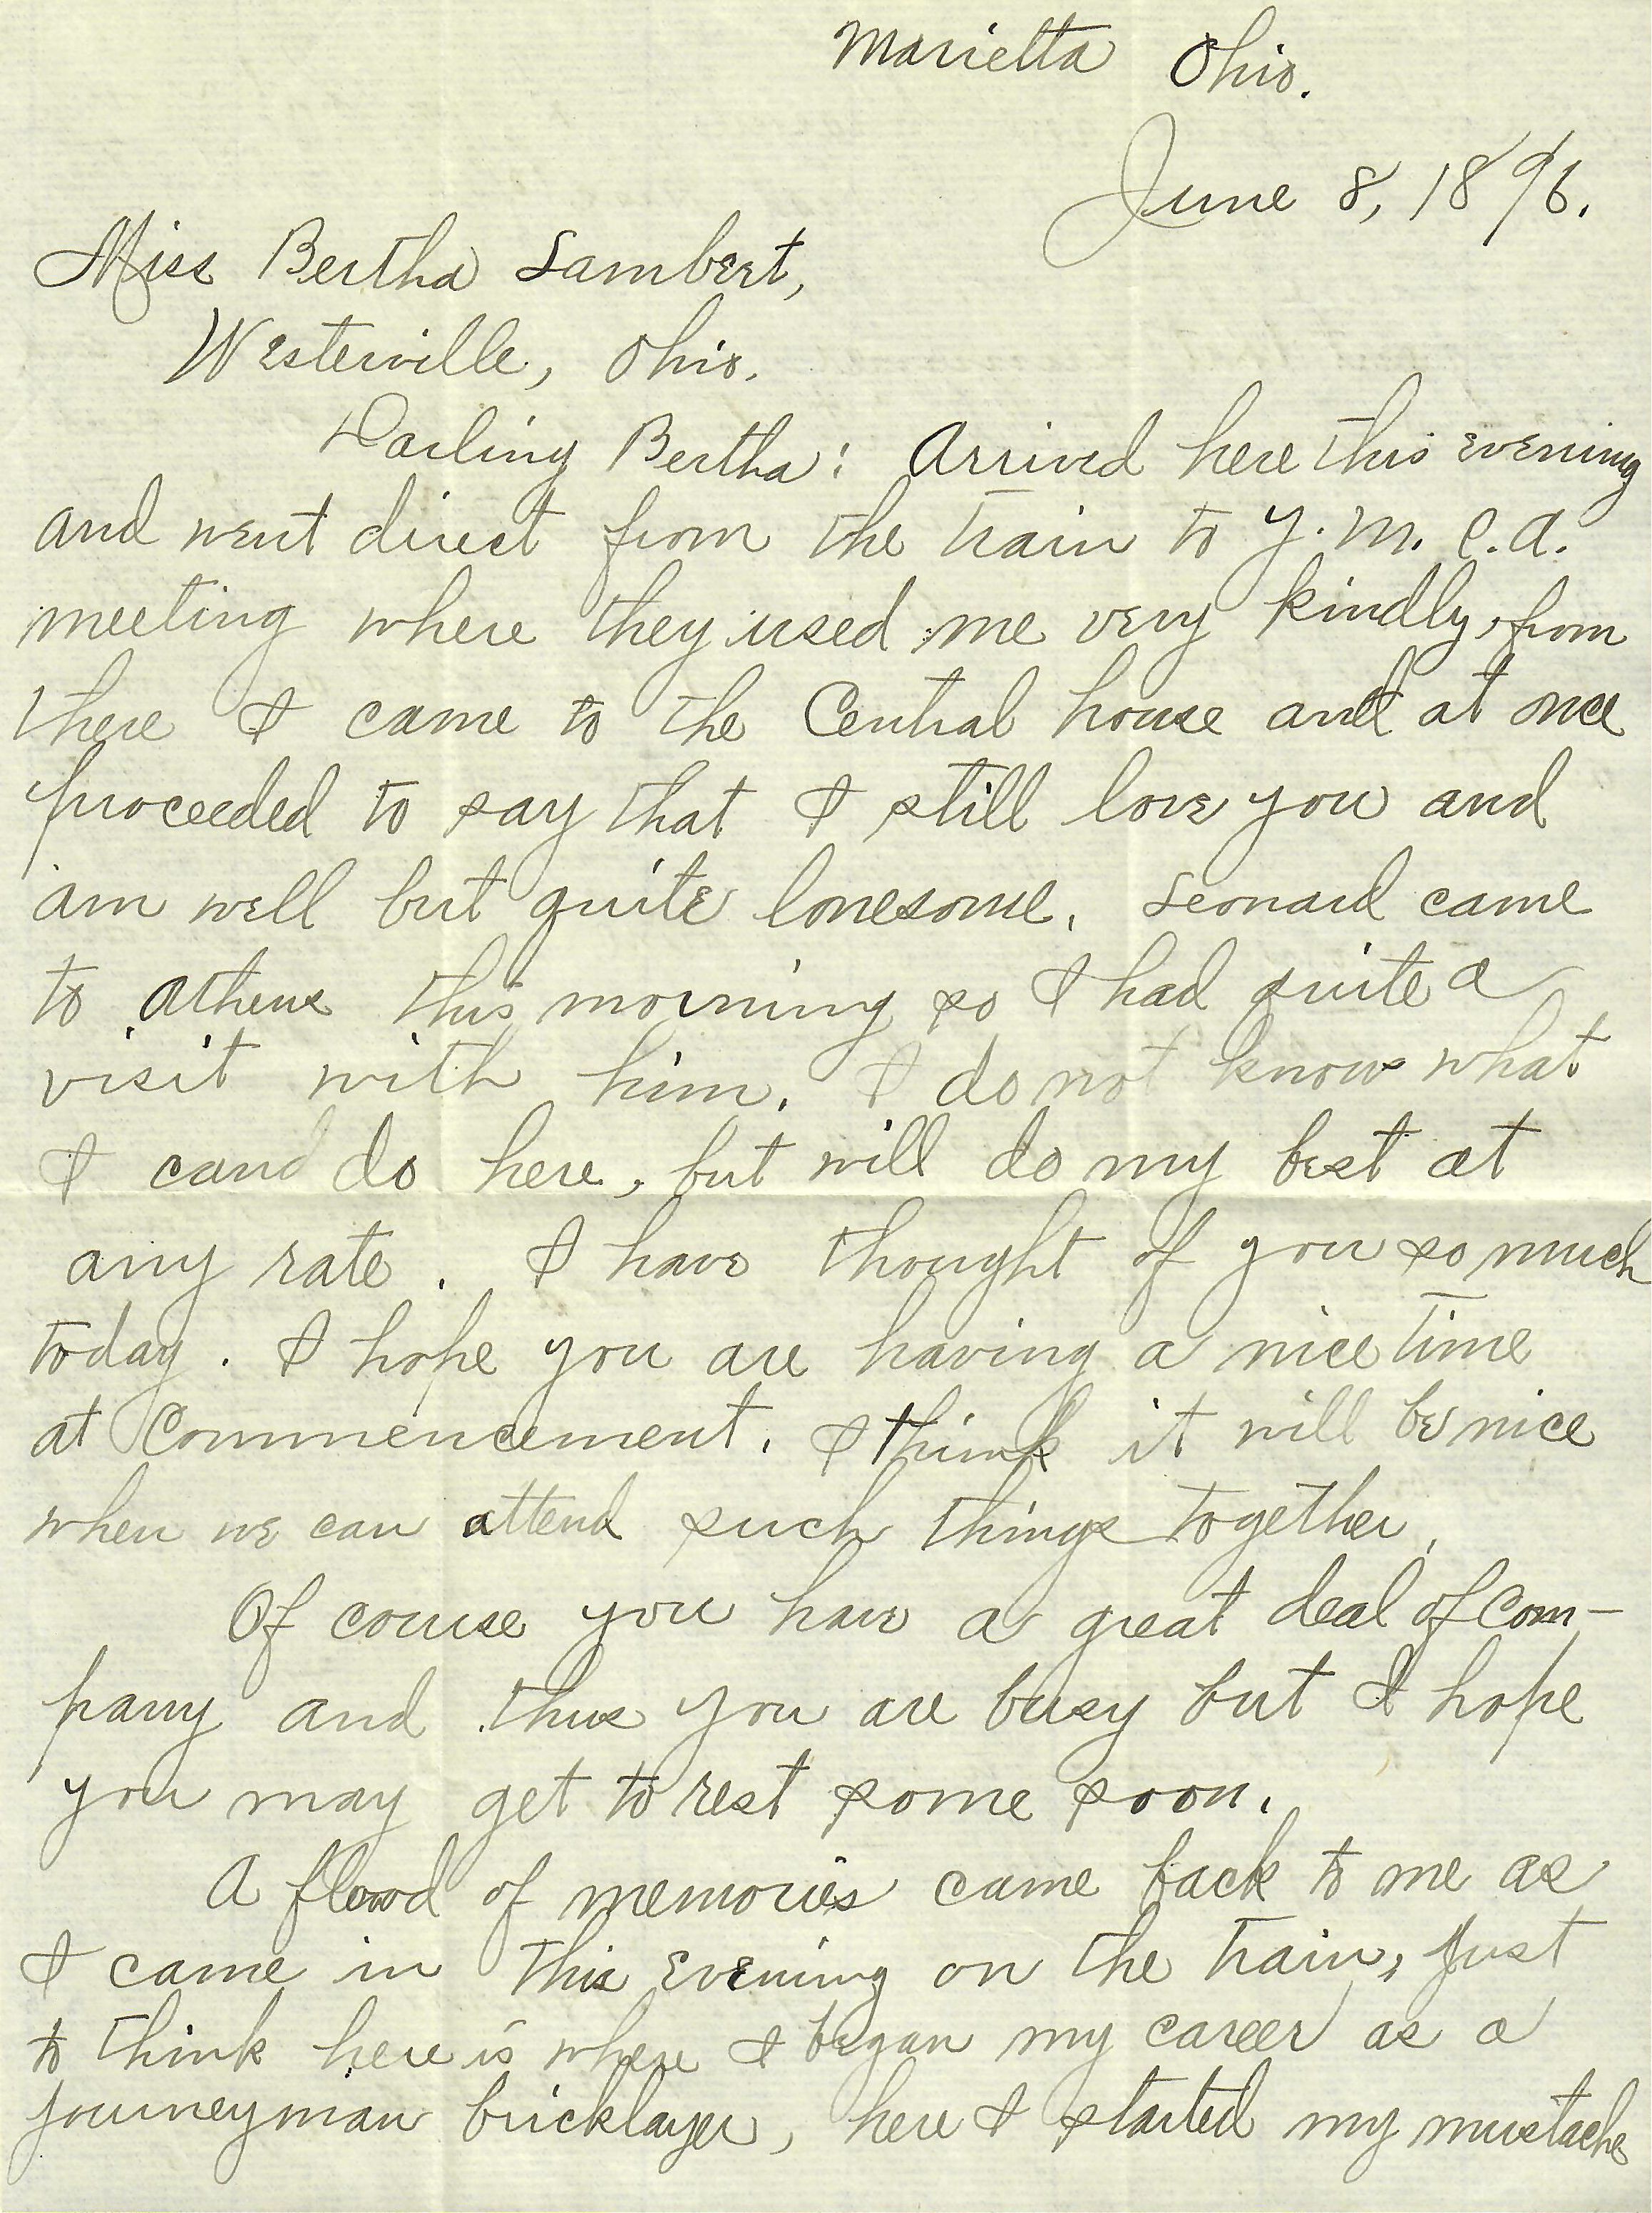 Marietta Ohio.
June 8, 1896.
Miss Bertha Lambert,
Westerville, Ohio.
Darling Bertha: Arrived here this evening
and went direct from the train to Y. M. C. A.
meeting where they used me very kindly, from
there I came to the Central house and at once
proceeded to say that I still love you and
am well but quite lonesome. Leonard came
to Athens this morning so I had quite a
visit with him. I do not know what
I cand do here, but will do my best at
any rate. I have thought of you so much
today. I hope you are having a nice time
at Commencement. I think it will be nice
when we can attend such things together.
Of course you have a great deal of Com-
pany and thus you are busy but I hope
you may get to rest some soon.
A flood of memories came back to me as
I came in this evening on the train, Just
to think here is where I began my career as a
journeyman bricklayer, here I started my mustache